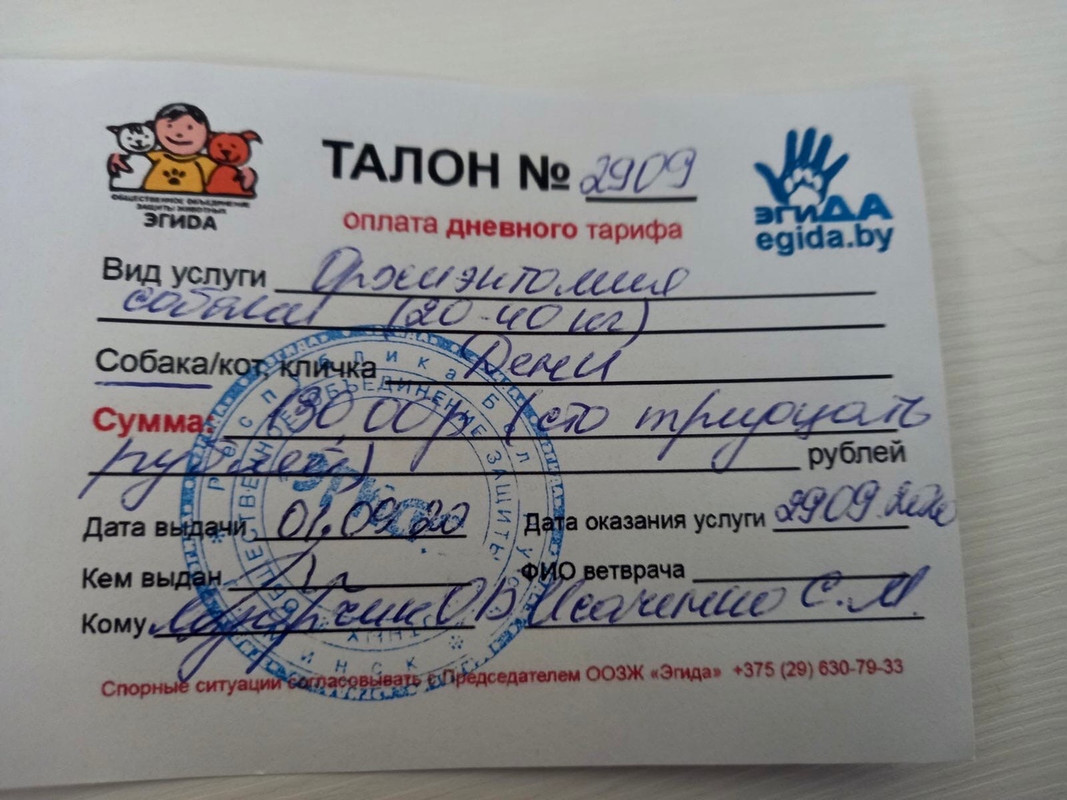 ОБЩЕСТВЕННОЕ ОБЪЕДИНЕНИЕ
ЗАЩИТЫ ЖИВОТНЫХ
ЭГИDА
ТАЛОН № 2909
оплата дневного тарифа
эгиДА
egida.by
Вид услуги Орхиэктомия
собаки (20-40 кг)
Собака/кот, кличка Дени
Сумма: 130 00 р. (сто тридцать
рублей) рублей
Дата выдачи 01.09.20 Дата оказания услуги 2909.2020
Кем выдан ФИО ветврача
Кому О.В. Исаченко С.М.
Спорные ситуации согласовывать с Председателем ООЗЖ «Эгида» +375 (29) 630-79-33